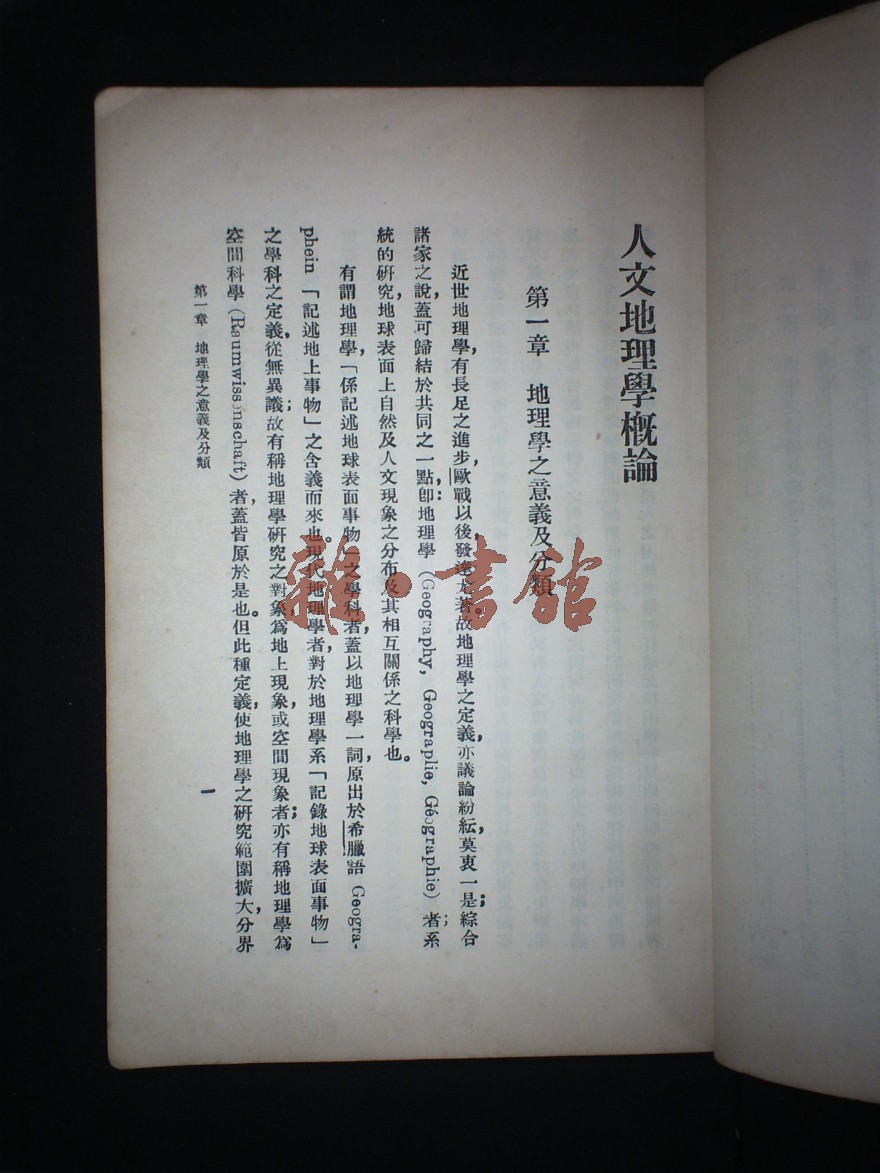 人文地理學概論
第一章 地理學之意義及分類
近世地理學,有長足之進步,歐戰以後,發達尤著。故地理學之定義,亦議論紛紜,莫衷一是;綜合
諸家之說,蓋可歸結於共同之一點,卽:地理學(Geography, Geographie, Géographie)者;系
統的硏究,地球表面上自然及人文現象之分布及其相互關係之科學也。
有謂地理學,「係記述地球表面事物」之學科者,蓋以地理學一詞,原出於希臘語 Geogra-
phein 「記述地上事物」之含義而來也。現代地理學者,對於地理學系「記錄地球表面事物」
之學科之定義,從無異議;故有稱地理學硏究之對象,爲地上現象,或空間現象者;亦有稱地理學爲
空間科學(Raumwissenschaft)者,蓋皆原於是也。但此種定義,使地理學之硏究範圍擴大,分界
第一章 地理學之意義及分類
一
雜·書館